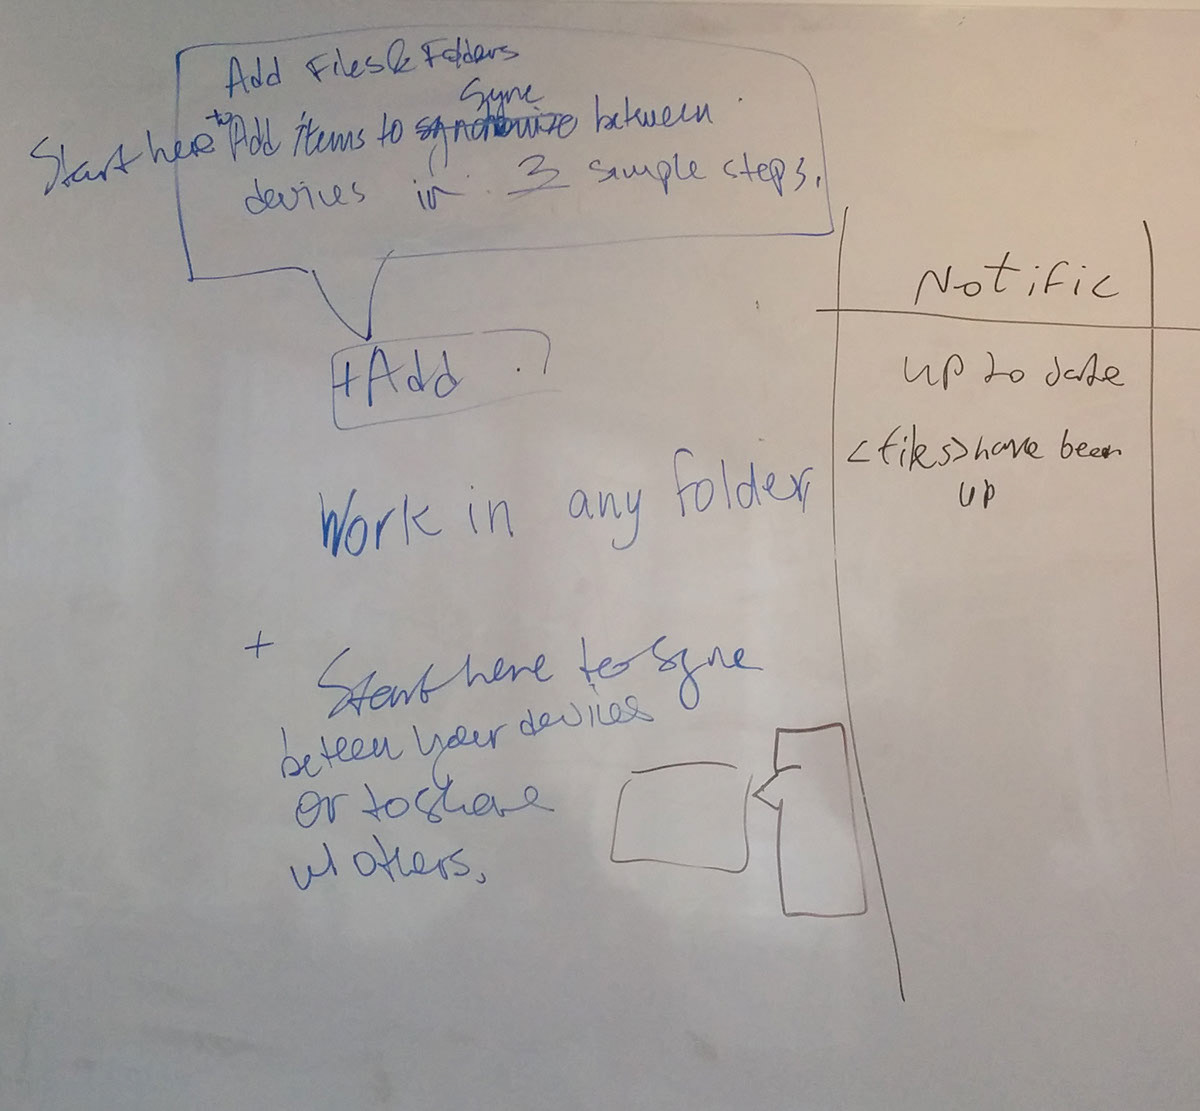 Add Files & Folders
Sync
Start here to Add items to synchronize between
devices in 3 simple steps.
+Add
Work in any folder,
+
Start here to sync
beteen your devices
or to share
w/ others.
Notific
up to date
<files> have been
up